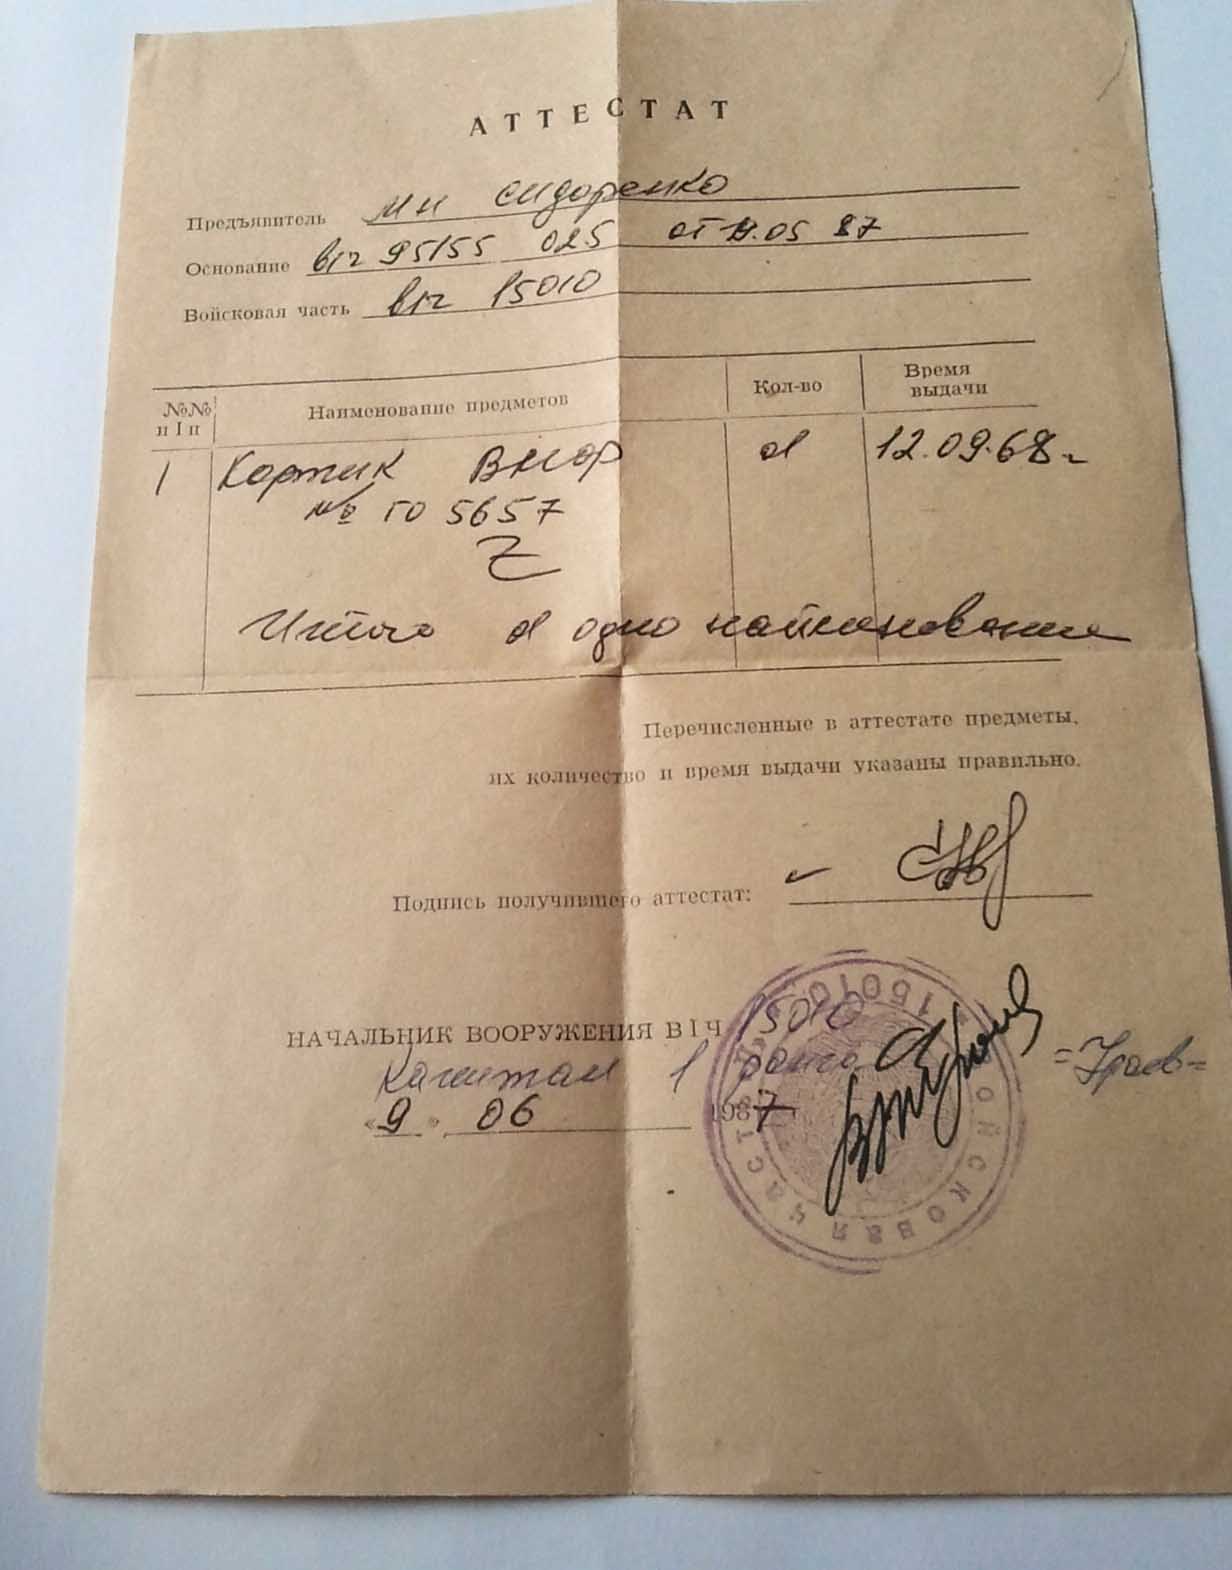 АТТЕСТАТ
Предъявитель мн Сидоренко
Основание в/ч 95155 025 от .05 87
Войсковая часть в/ч 15010
№№ п/п Наименование предметов Кол-во Время выдачи
1 Кортик ВМОФ 1 12.09.68г
№ ГО 5657
Итого 1 одно наименование
Перечисленные в аттестате предметы,
их количество и время выдачи указаны правильно.
Подпись получившего аттестат:
НАЧАЛЬНИК ВООРУЖЕНИЯ В/Ч 15010
Капитан 1 ранга
«9» 06 1987
ВОЙСКОВАЯ ЧАСТЬ 15010